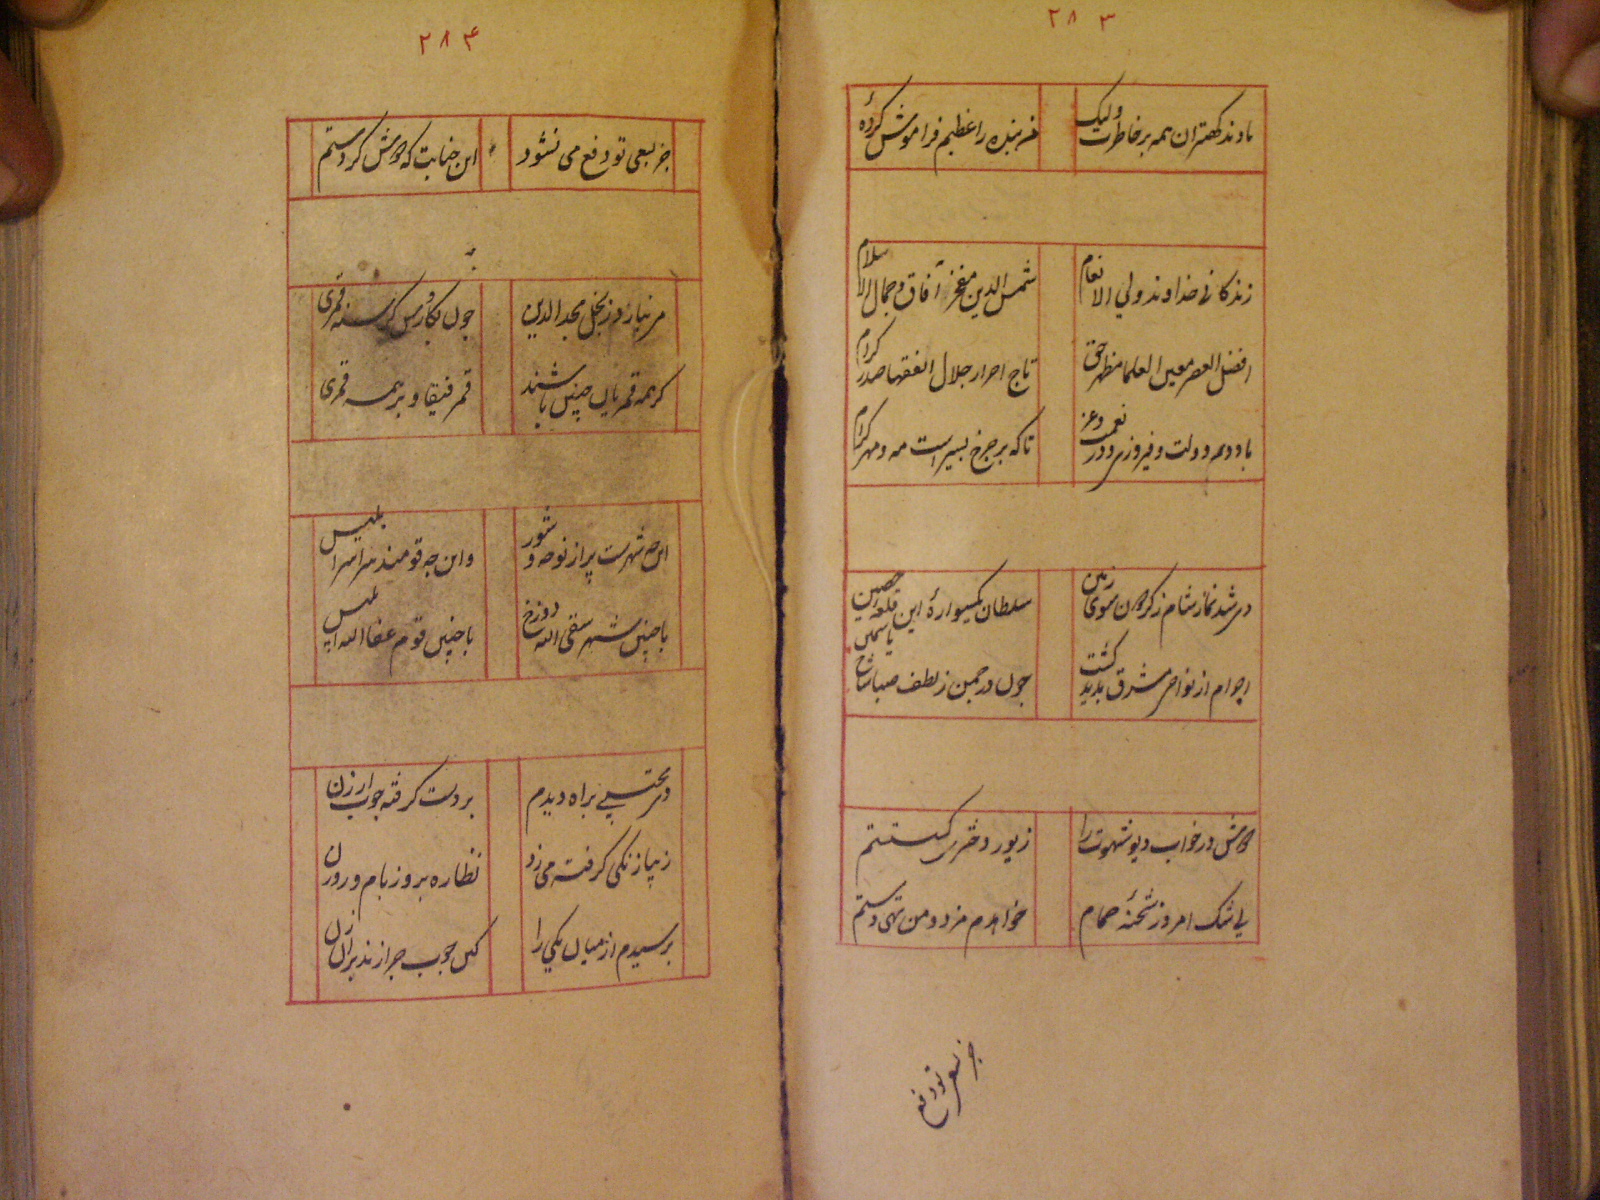 ۲۸۳
یادند کهتران همه بر خاطرت ولیک
خر بنده را عظیم فراموش کردهٔ
زندکانی خداوند ولی الانعام
شمس الدین مفخر آفاق و جمال الاسلام
افضل العصر معین العلما مظهر حق
تاج احرار جلال الفقها صدر کرام
باد و هم دولت و فیروزی و در نعمت و عز
تا که بر چرخ بسیر است مه و مهر
در شد نماز شام ز کردون سوی زمین
سلطان یکسوارهٔ این قلعه حصین
از نواحی مشرق بدید کشت
چون در چمن ز لطف صبا شاخ یاسمین
دوش در خواب دیو شهوت را
زیور دختری
بی شک امروز شحنهٔ حمام
خواهدم مزد و من تهی دستم
جز بسعی تو دفع
۲۸۴
جز بسعی تو دفع می نشود
این جنابت که دوش کردستم
ز بخل مجد الدین
چون کرسنه قمری
کر همه قمریان چنین باشند
قمر فیقا و بر همه قمری
این چه شهرست پر از نوحه و شور
وان چه قومند سراسر ابلیس
با چنین شهر سقی الله دوزخ
با چنین قوم عفا الله ابلیس
دی محتسبی براه دیدم
بر دست کرفته چوب ارزن
زنکی کرفته می زد
نظاره برو ز بام و روزن
پرسیدم از میان یکی را
کین چوب چرا زند بران زن